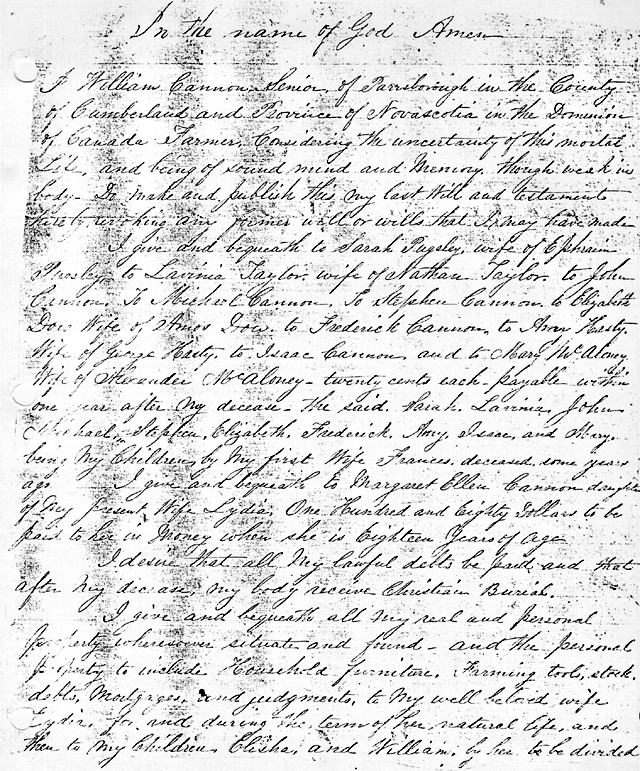 In the name of God Amen
I William Cannon, Senior, of Parrsborough in the County
of Cumberland and Province of Novascotia in the Dominion
of Canada Farmer, Considering the uncertainty of this mortal
Life, and being of sound mind and Memory, though weak in
body - Do make and publish this my last Will and testament
hereby revoking any former will or wills that I may have made
I give and bequeath to Sarah Pugsley, wife of Ephraim
Pugsley, to Lavinia Taylor, wife of Nathan Taylor, to John
Cannon, To Michael Cannon, To Stephen Cannon, to Elizabeth
Dow Wife of Amos Dow, to Frederick Cannon, to Amy Hasty,
Wife of George Hasty, to Isaac Cannon, and to Mary McAloney
Wife of Alexander McAloney - twenty cents each - payable within
one year after my decease - the said, Sarah, Lavinia, John
Michael, Stephen, Elizabeth, Frederick, Amy, Isaac, and Mary,
being My Children by My first Wife Frances, deceased some years
ago. I give and bequeath to Margaret Ellen Cannon daughter
of my present Wife Lydia, One Hundred and Eighty Dollars to be
paid to her in Money when she is Eighteen Years of age
I desire that all My lawful debts be paid, and that
after My decease, my body receive Christian Burial.
I give and bequeath all my real and personal
property wheresoever situate and found - and the personal
property to include Household furniture, Farming tools, stock,
debts, Mortgages, and judgments, to My well beloved wife
Lydia, for and during the term of her natural life, and
then to My Children, Elisha, and William, by her, to be divided